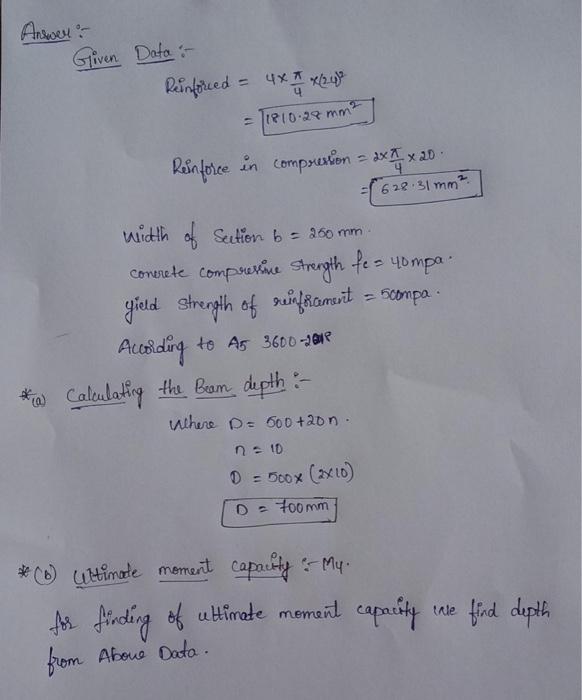 Answer :-
Given Data :-
Reinforced = 4 x π/4 x (24)²
= 1810.28 mm²
Reinforce in compression = 2x π/4 x 20.
= 628.31 mm².
width of Section b = 250 mm.
concrete compressive strength fc = 40mpa.
yield strength of reinforcament = 500mpa.
According to AS 3600-2018
*(a) Calculating the Beam depth :-
where D = 500+20n.
n = 10
D = 500x (2x10)
D = 700mm
*(b) Ultimate moment capacity :- Mu.
for finding of ultimate moment capacity we find depth
from Above Data.